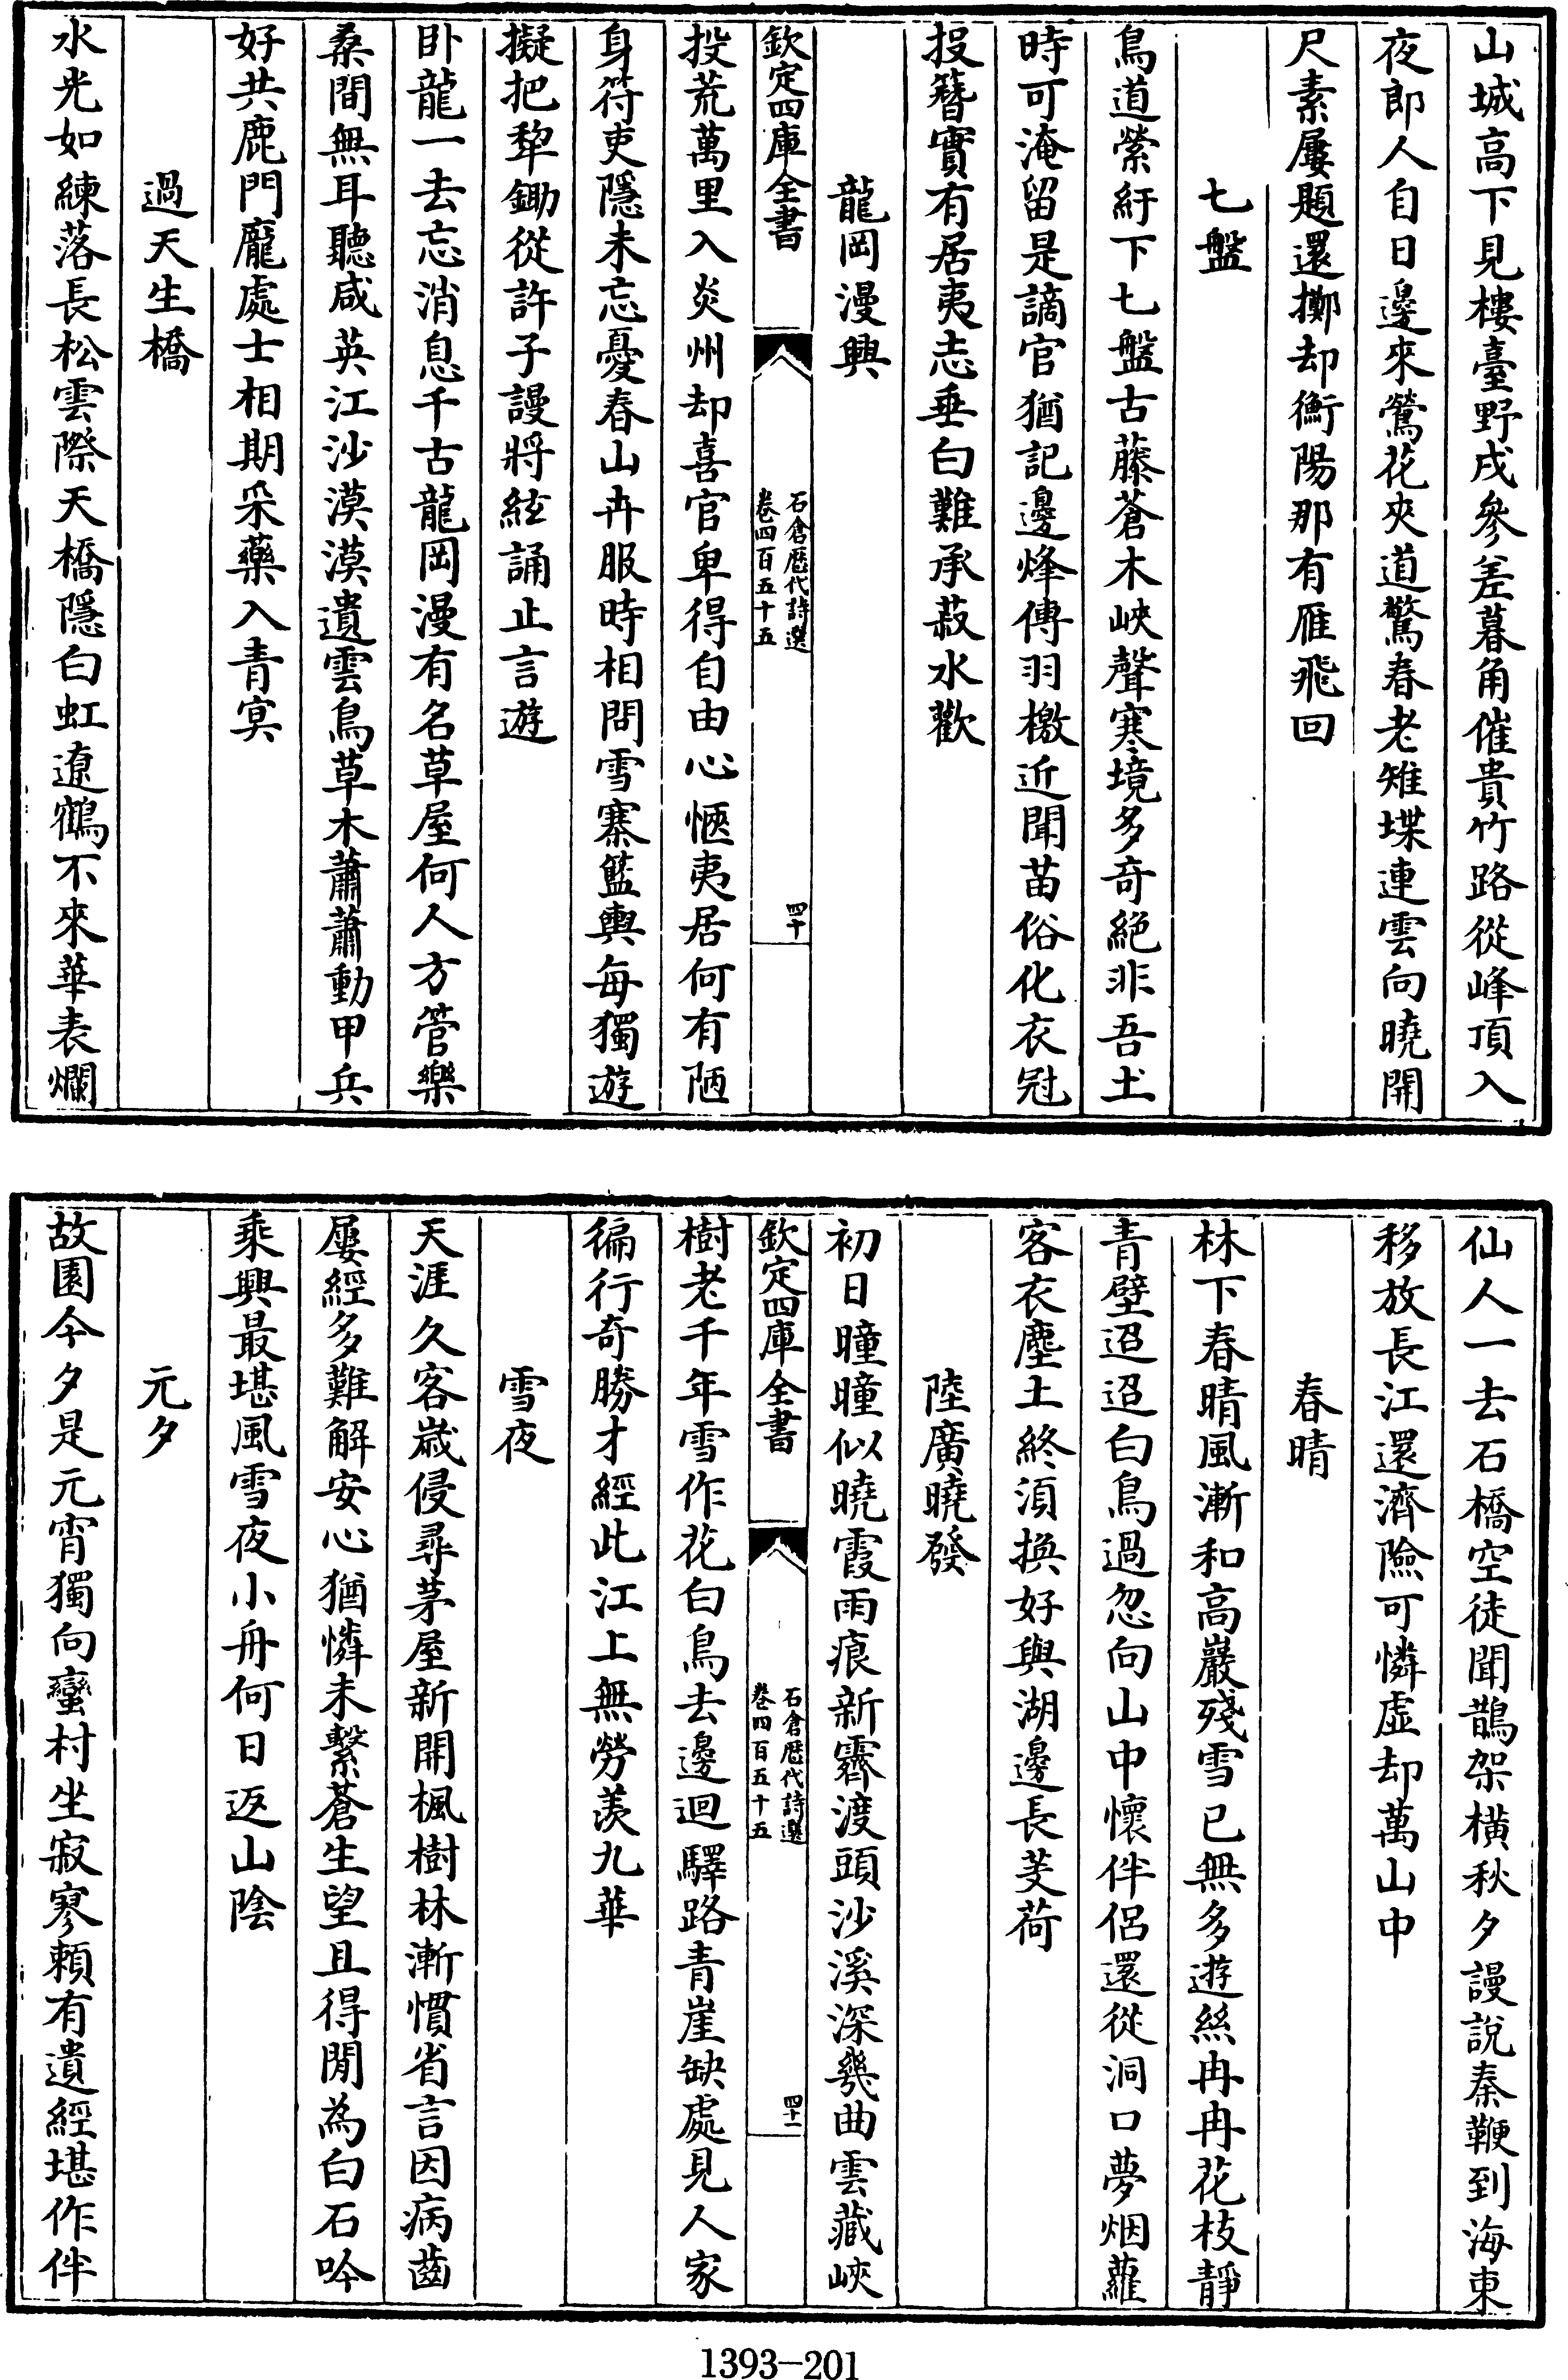 山城高下見樓臺野戍參差暮角催貴竹路從峰頂入
夜郎人自日邊來鶯花夾道驚春老雉堞連雲向曉開
尺素屢題還擲却衡陽那有雁飛回
七盤
鳥道縈紆下七盤古藤蒼木峽聲寒境多奇絕非吾土
時可淹留是謫官猶記邊烽傳羽檄近聞苗俗化衣冠
投簪實有居夷志垂白難承菽水歡
龍岡漫興
欽定四庫全書
石倉歷代詩選
卷四百五十五
四十
投荒萬里入炎州却喜官卑得自由心愜夷居何有陋
身符吏隱未忘憂春山卉服時相問雪寨籃輿每獨遊
擬把犂鋤從許子謾將絃誦止言遊
卧龍一去忘消息千古龍岡漫有名草屋何人方管樂
桑間無耳聽咸英江沙漠漠遺雲鳥草木蕭蕭動甲兵
好共鹿門龎處士相期采藥入青冥
過天生橋
水光如練落長松雲際天橋隱白虹遼鶴不來華表爛
仙人一去石橋空徒聞鵲架橫秋夕謾說秦鞭到海東
移放長江還濟險可憐虛却萬山中
春晴
林下春晴風漸和高巖殘雪已無多遊絲冉冉花枝靜
青壁迢迢白鳥過忽向山中懷伴侶還從洞口夢烟蘿
客衣塵土終須換好與湖邊長芰荷
陸廣曉發
初日曈曈似曉霞雨痕新霽渡頭沙溪深幾曲雲藏峽
欽定四庫全書
石倉歷代詩選
卷四百五十五
四十一
樹老千年雪作花白鳥去邊迴驛路青崖缺處見人家
徧行奇勝才經此江上無勞羨九華
雪夜
天涯久客歲侵尋茅屋新開楓樹林漸慣省言因病齒
屢經多難解安心猶憐未繫蒼生望且得閒為白石吟
乘興最堪風雪夜小舟何日返山陰
元夕
故園今夕是元宵獨向蠻村坐寂寥賴有遺經堪作伴
1393-201